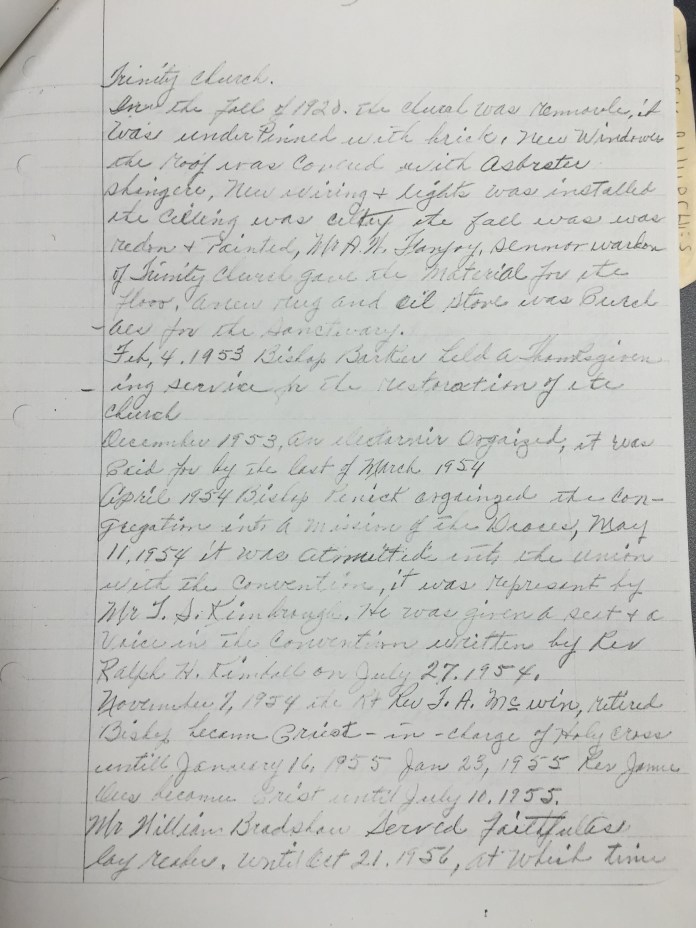 Trinity church.
In the fall of 1920. the church was remnovle, it
was underPinned with brick, New Windows
the roof was Coverd with Asbrster
shingere, New wiring + lights was installed
the Cilling was the fall was was
redon + Painted, Mr A.W. Fanjoy, sennor warden
of Trinity Church gave the Material for the
floor. a new rug and oil stove was Purch
aes for the Sanctuary.
Feb, 4. 1953 Bishop Barker held a Thanksgiven
ing service for the restoration of the
church
December 1953, an Orgaized, it was
Paid for by the last of March 1954
April 1954 Bishop Penick orgainzed the Con-
gregation into a Mission of the Dioces, May
11, 1954 it was atmitted into the union
with the Convention, it was represant by
Mr T. S. Kimbrough. He was given a seat + a
Voice in the Convention written by Rev
Ralph H. Kimball on July 27. 1954.
November 7, 1954 the Rt Rev T. A. retired
Bishop becam Priest - in - charge of Holy Cross
untill January 16, 1955 Jan 23, 1955 Rev
became Prist until July 10. 1955.
Mr William Bradshaw Served faithfulles
lay reader. until Oct 21. 1956, at which time